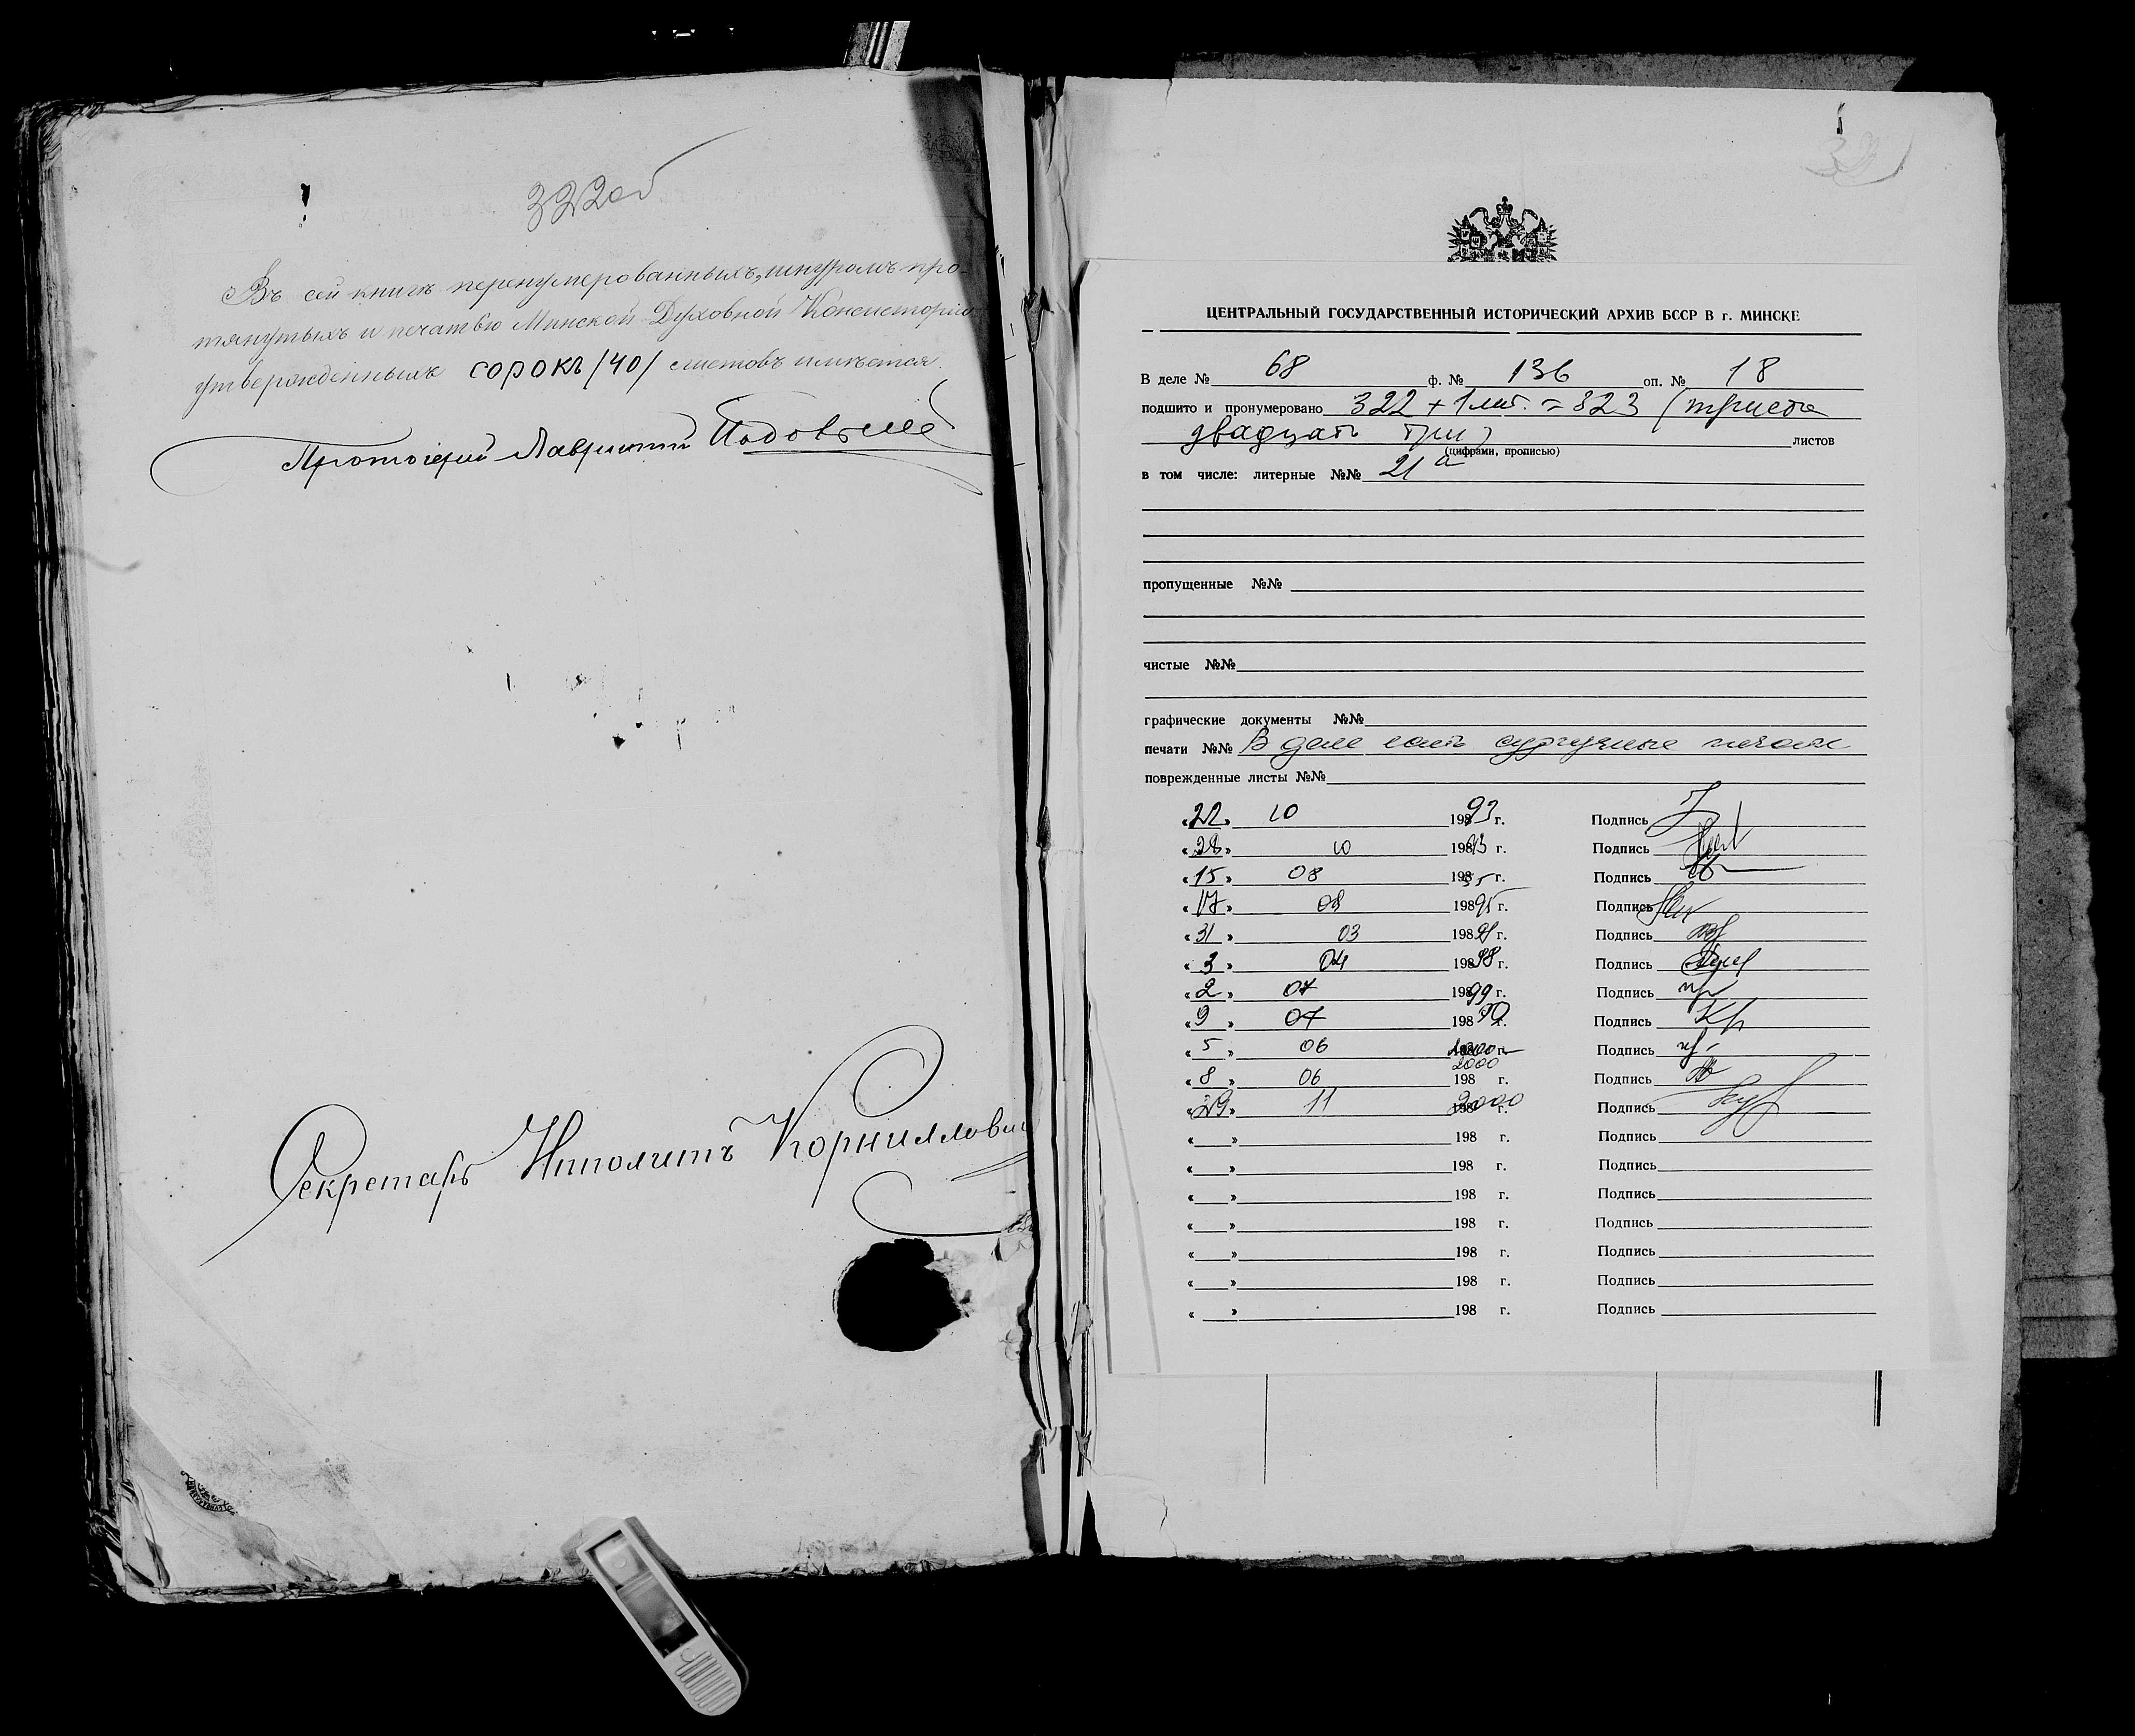 322об
Въ сей книгѣ перенумерованныхъ, шнуромъ про-
тянутыхъ и печатью Минской Духовной Консисторіи
утвержденныхъ сорокъ /40/ листовъ имѣется.
Протоіерей Лаврентій
Секретарь Ипполитъ Корнилович
ЦЕНТРАЛЬНЫЙ ГОСУДАРСТВЕННЫЙ ИСТОРИЧЕСКИЙ АРХИВ БССР В г. МИНСКЕ
В деле № 68 ф. № 136 оп. № 18
подшито и пронумеровано 322 + 1 лит. = 323 (триста
двадцать три) листов
(цифрами, прописью)
в том числе: литерные №№ 21а
пропущенные №№
чистые №№
графические документы №№
печати №№ В деле есть сургучные печати
поврежденные листы №№
«22» 10 19893 г. Подпись
«28» 10 19893 г. Подпись
«15» 08 198 г. Подпись
«17» 08 19895 г. Подпись
«31» 03 198 г. Подпись
«3» 04 19898 г. Подпись
«2» 07 19899 г. Подпись
«9» 07 198 г. Подпись
«5» 06 2000 Подпись
«8» 06 198 г. Подпись
«29» 11 2000 г. Подпись
« » 198 г. Подпись
« » 198 г. Подпись
« » 198 г. Подпись
« » 198 г. Подпись
« » 198 г. Подпись
« » 198 г. Подпись
« » 198 г. Подпись